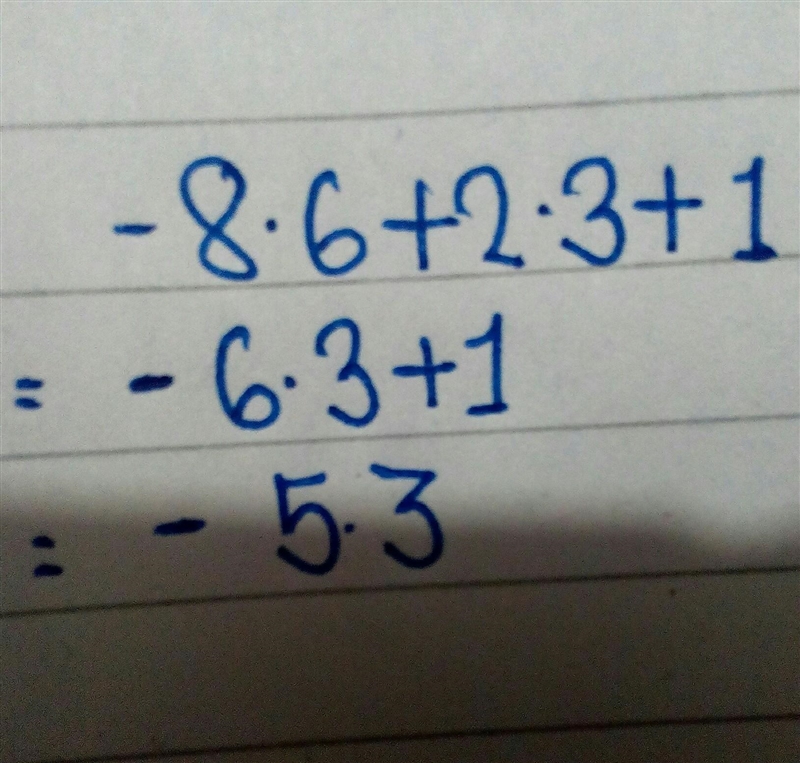 -8·6+2·3+1
= -6·3+1
= -5·3